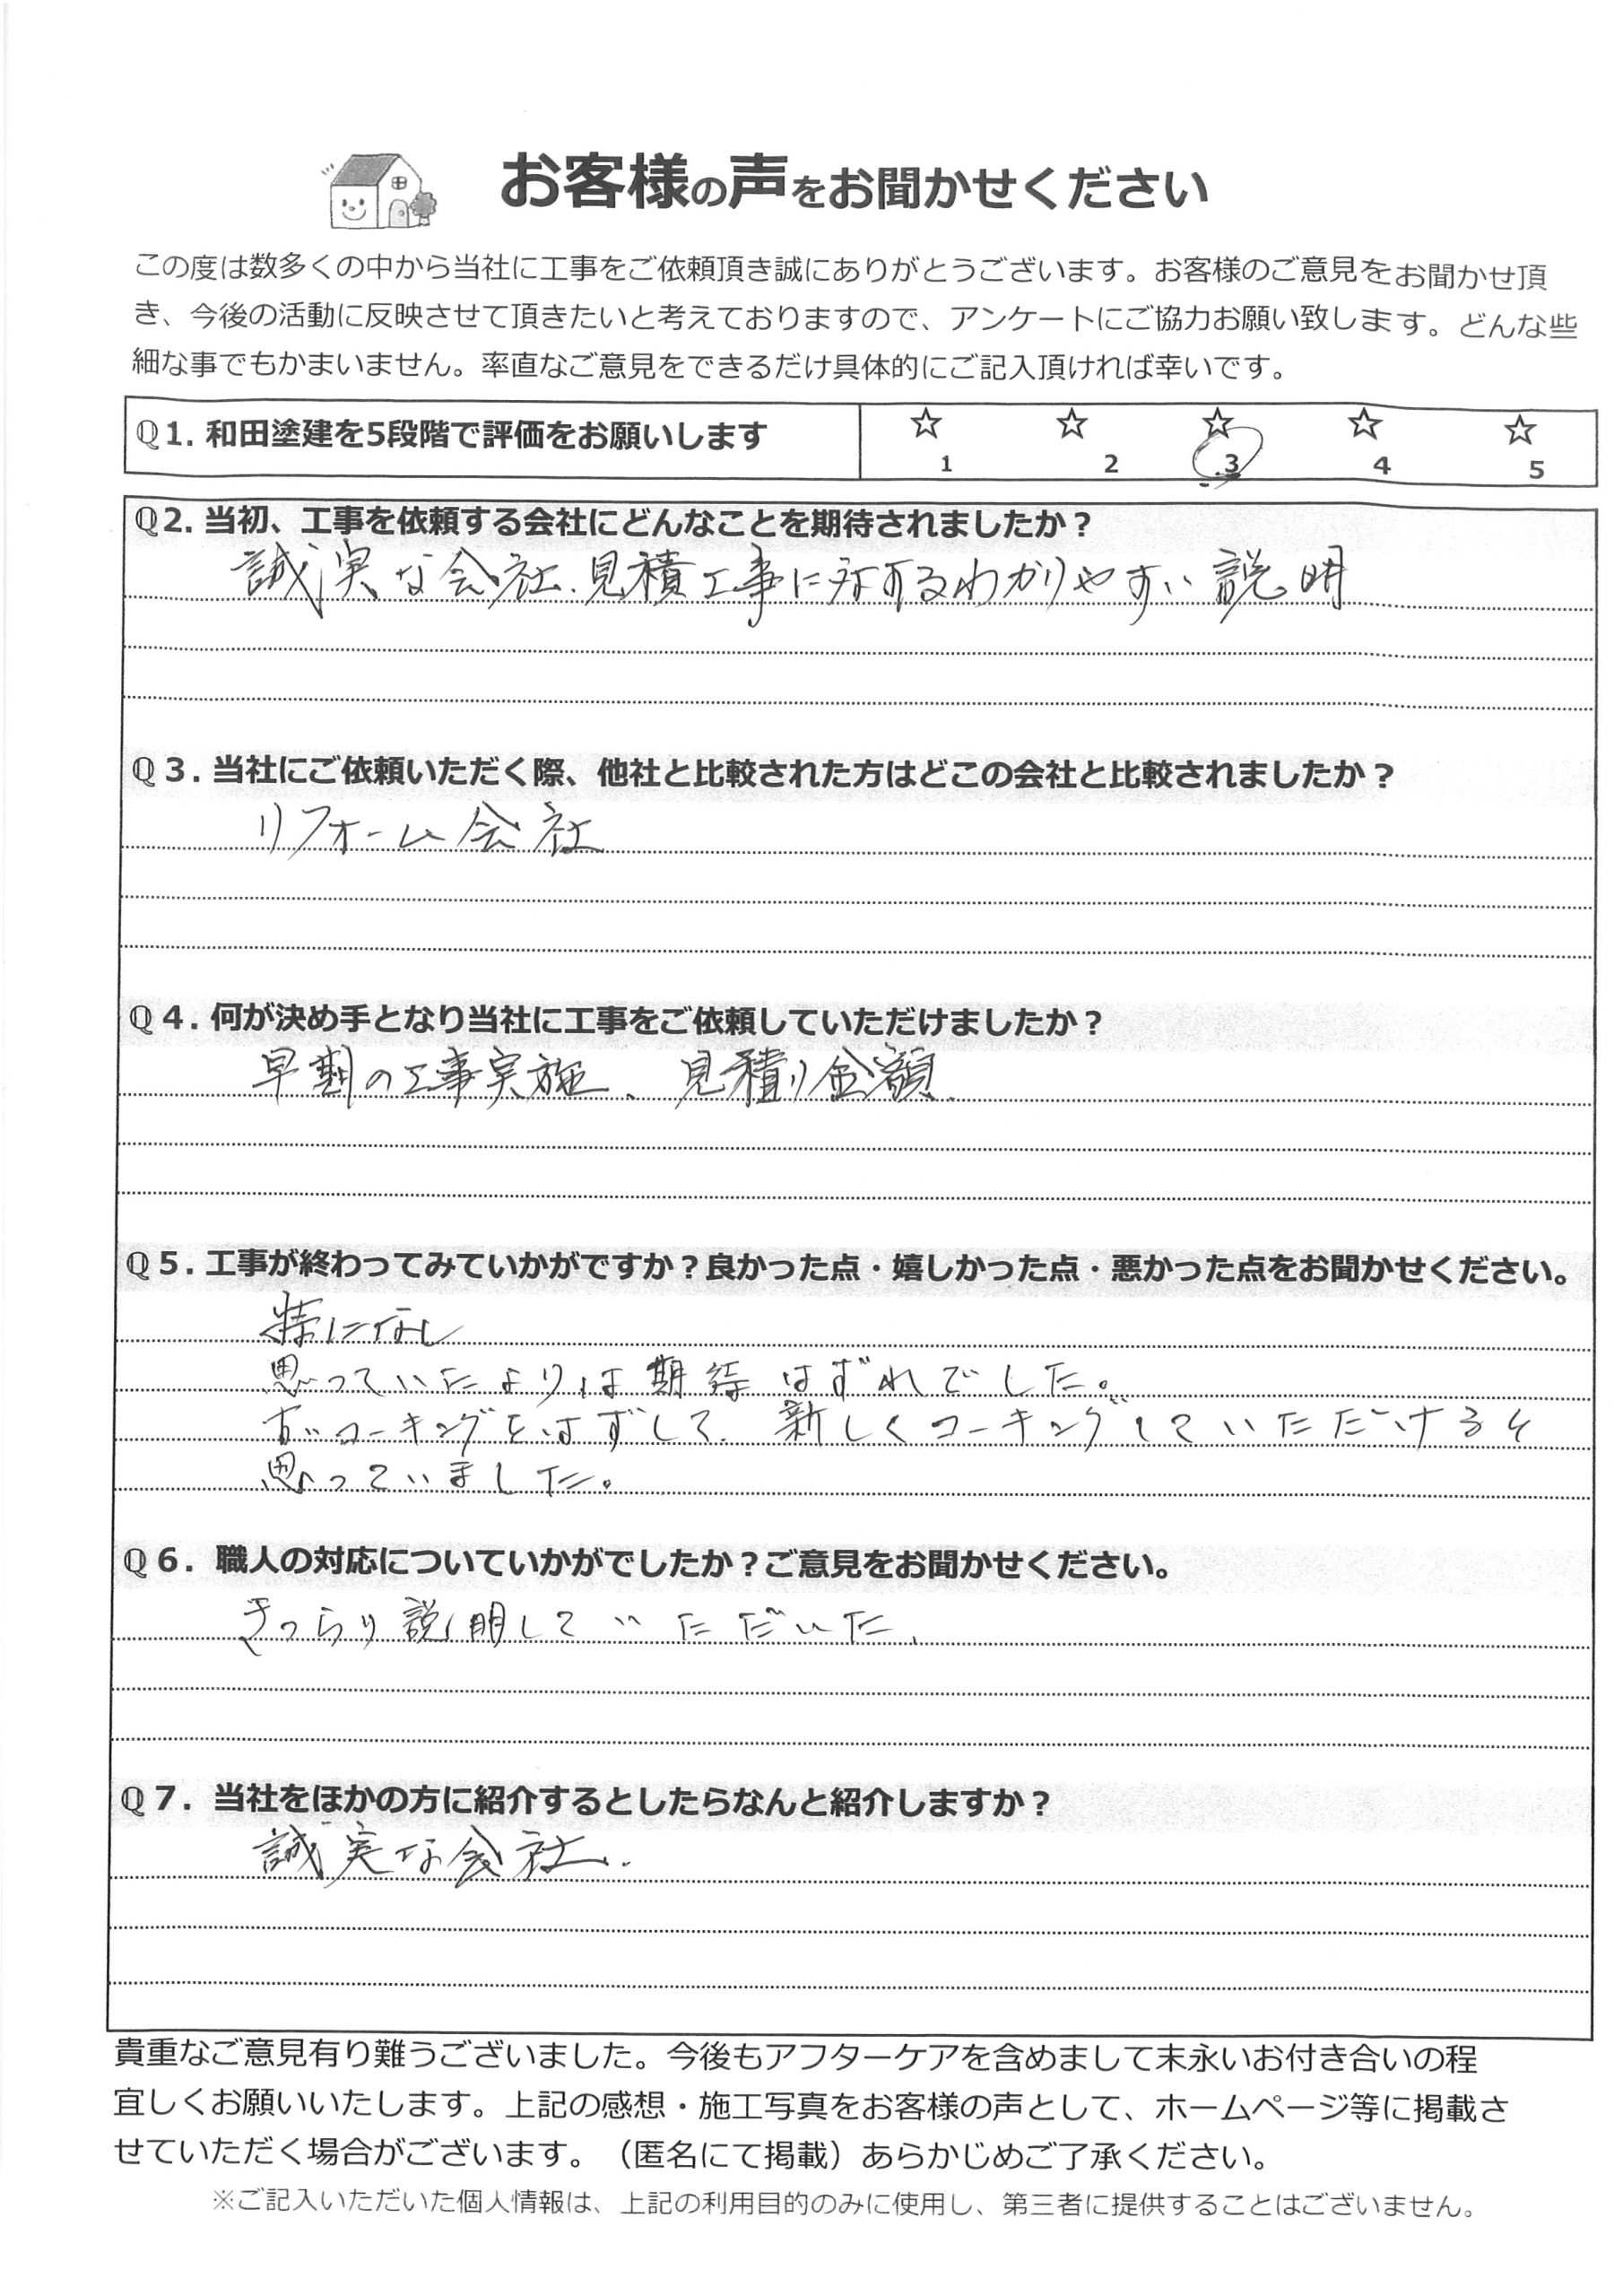 お客様の声をお聞かせください
この度は数多くの中から当社に工事をご依頼頂き誠にありがとうございます。お客様のご意見をお聞かせ頂
き、今後の活動に反映させて頂きたいと考えておりますので、アンケートにご協力お願い致します。どんな些
細な事でもかまいません。率直なご意見をできるだけ具体的にご記入頂ければ幸いです。
Q1. 和田塗建を5段階で評価をお願いします
☆ ☆ ☆ ☆ ☆
1 2 3 4 5
Q2. 当初、工事を依頼する会社にどんなことを期待されましたか？
誠実な会社、見積工事に対するわかりやすい説明
Q３. 当社にご依頼いただく際、他社と比較された方はどこの会社と比較されましたか？
リフォーム会社
Q４. 何が決め手となり当社に工事をご依頼していただけましたか？
早期の工事実施、見積り金額、
Q５. 工事が終わってみていかがですか？良かった点・嬉しかった点・悪かった点をお聞かせください。
特になし
思っていたよりは期待はずれでした。
古いコーキングをはずして、新しくコーキングしていただけると
思っていました。
Q６. 職人の対応についていかがでしたか？ご意見をお聞かせください。
きっちり説明していただいた、
Q７. 当社をほかの方に紹介するとしたらなんと紹介しますか？
誠実な会社、
貴重なご意見有り難うございました。今後もアフターケアを含めまして末永いお付き合いの程
宜しくお願いいたします。上記の感想・施工写真をお客様の声として、ホームページ等に掲載さ
せていただく場合がございます。（匿名にて掲載）あらかじめご了承ください。
※ご記入いただいた個人情報は、上記の利用目的のみに使用し、第三者に提供することはございません。